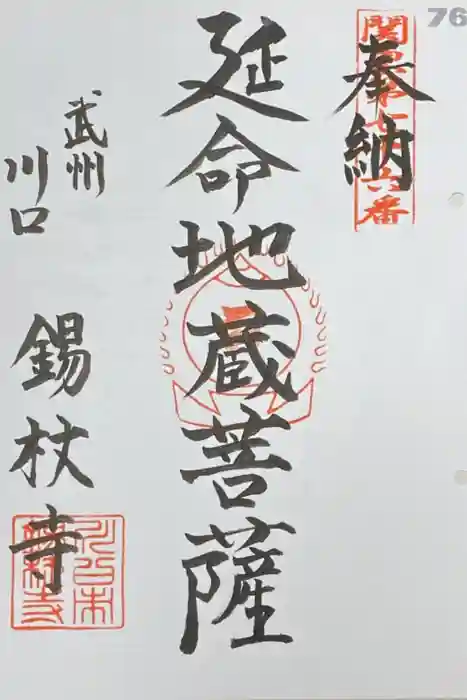 76
奉納
関東第七十六番
延命地蔵菩薩
武州
川口
錫杖寺